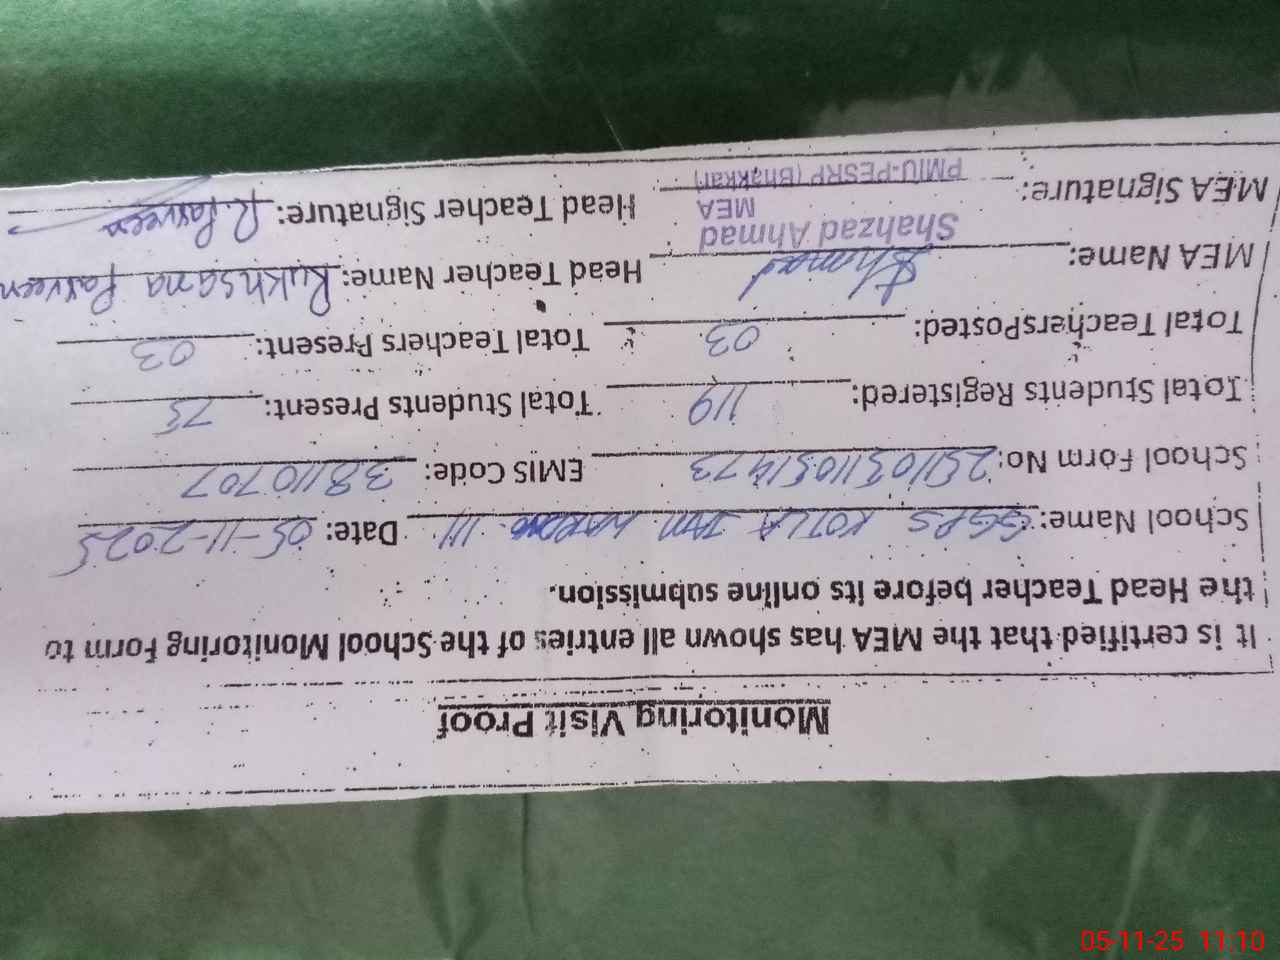 Monitoring Visit Proof
It is certified that the MEA has shown all entries of the School Monitoring Form to
the Head Teacher before its online submission.
School Name: GGPS KOTLA JAM III Date: 05-11-2025
School Form No: EMIS Code: 38110707
Total Students Registered: 119 Total Students Present: 75
Total TeachersPosted: 03 Total Teachers Present: 03
MEA Name: Ahmad Head Teacher Name: Rukhsana Parveen
Shahzad Ahmad
MEA
MEA Signature: PMIU-PESRP (Bhakkar) Head Teacher Signature: R. Parveen
05-11-25 11:10